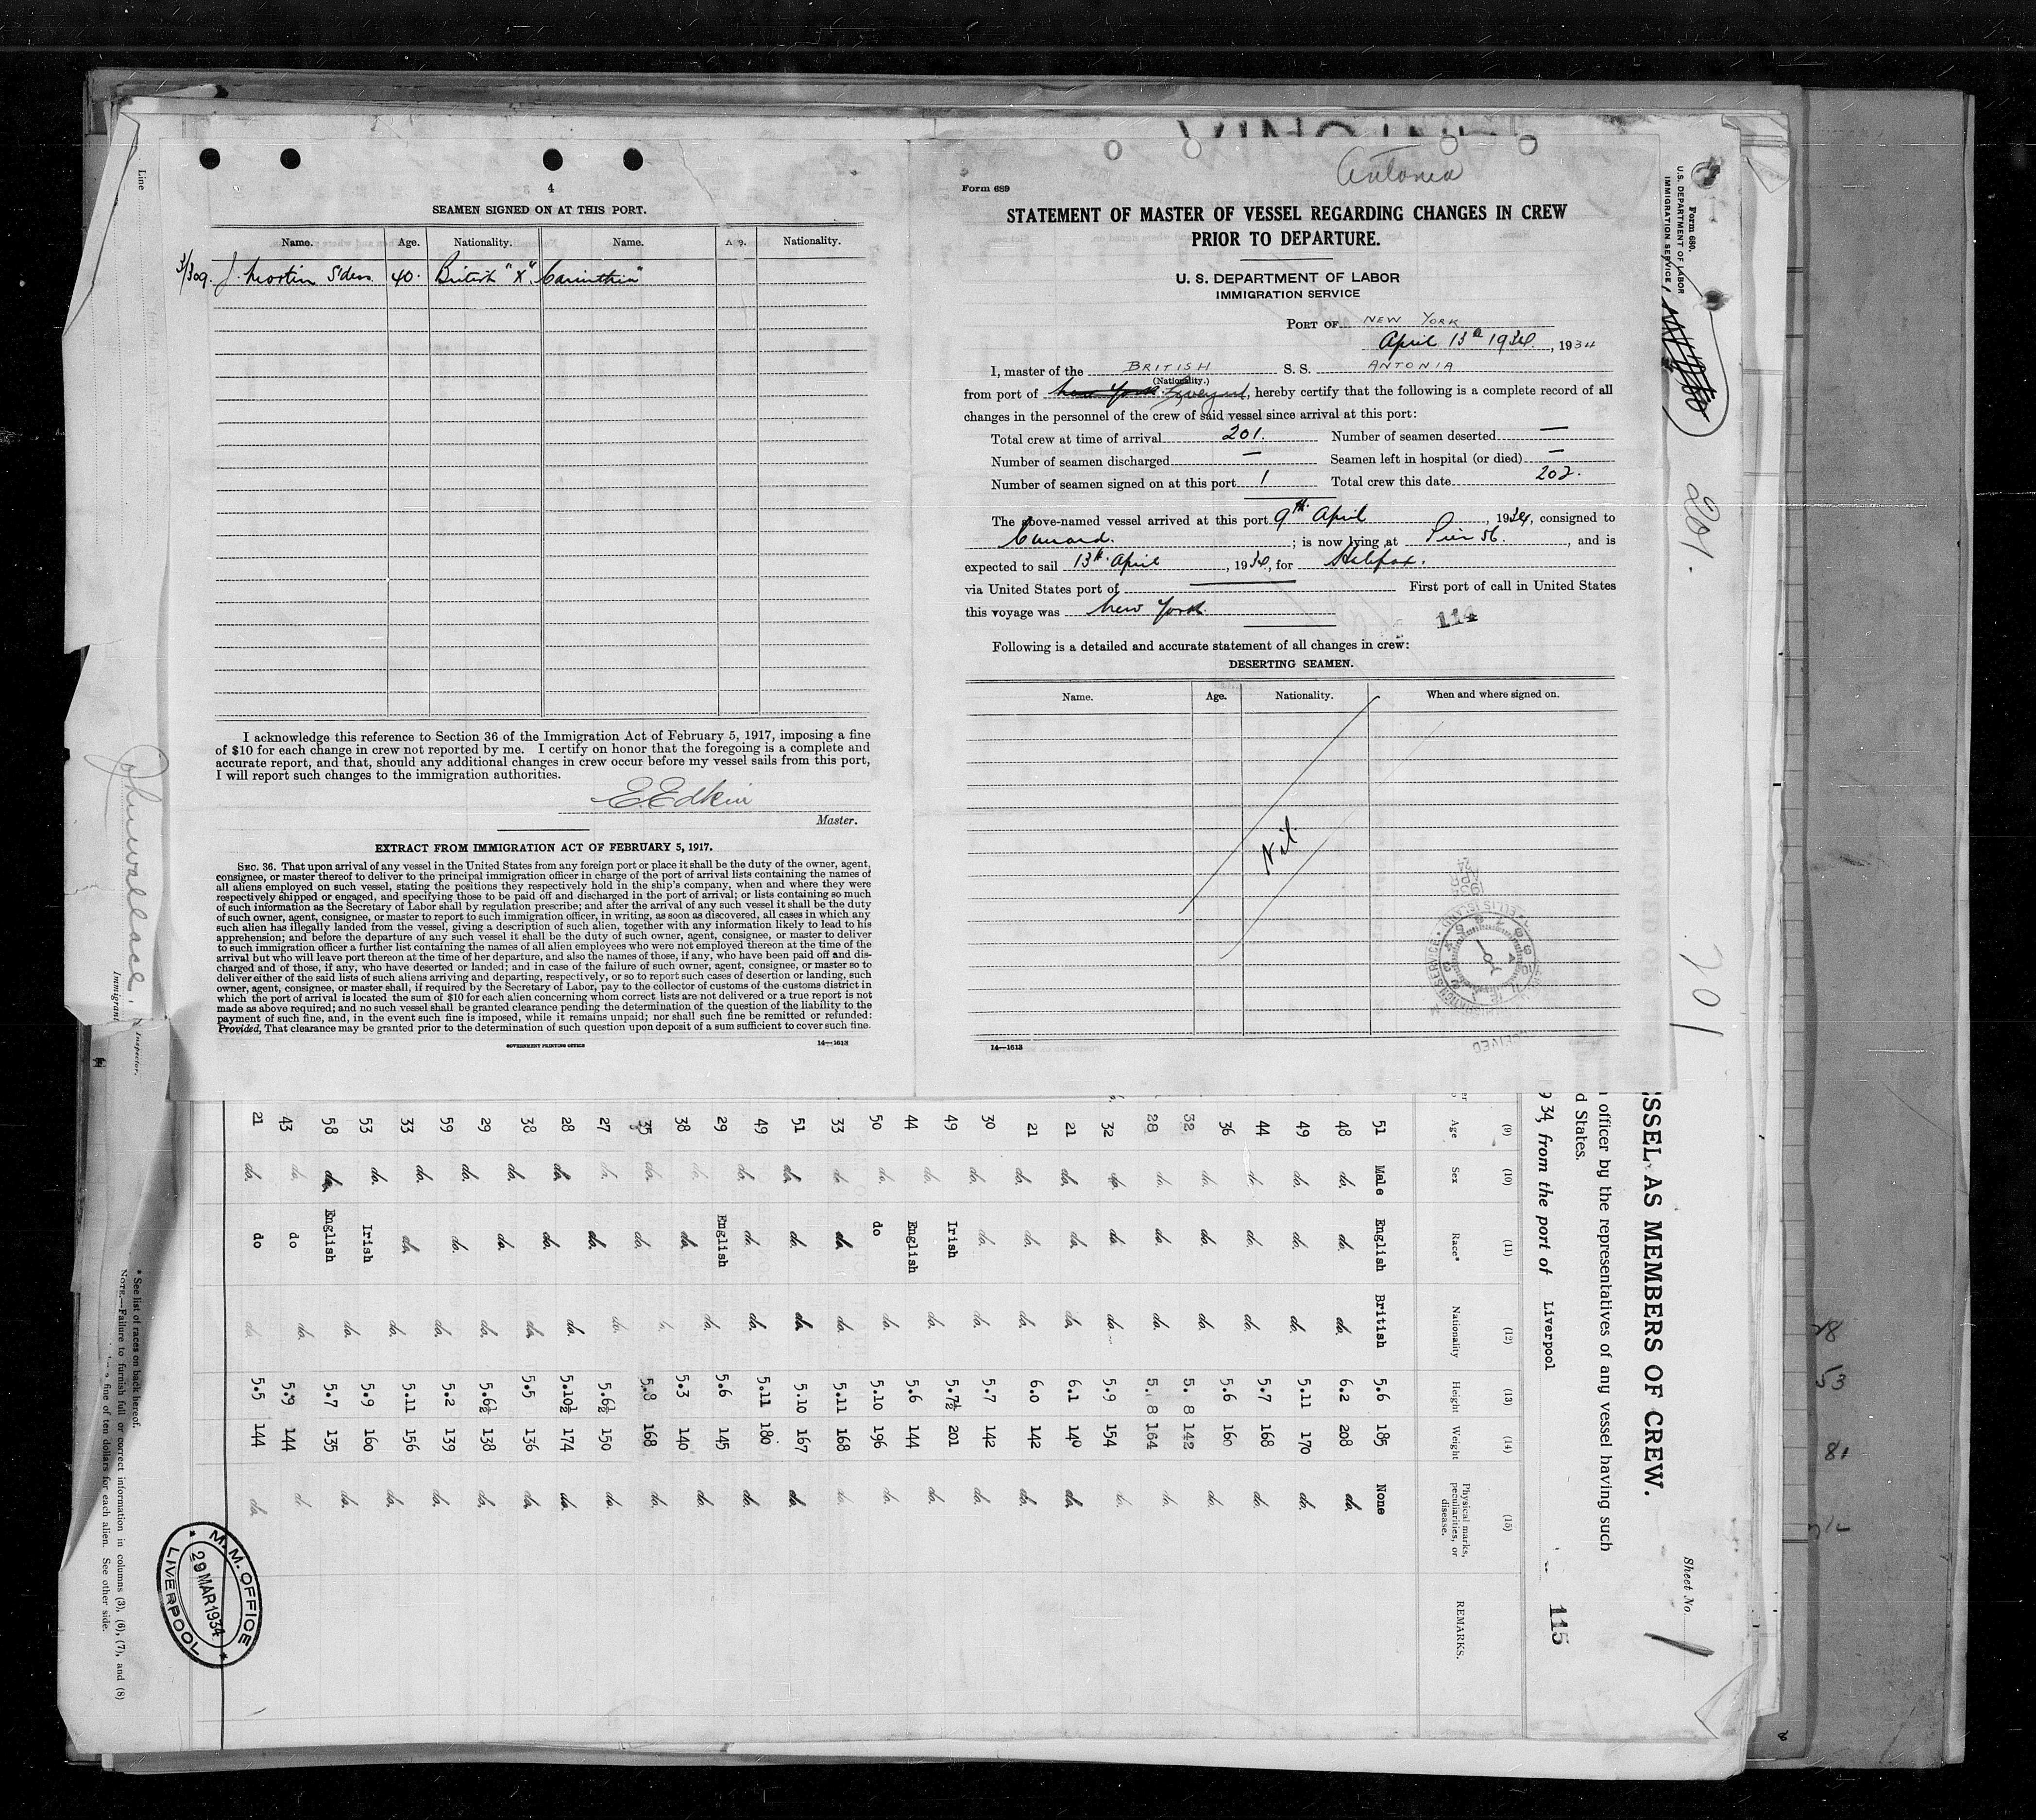 4
SEAMEN SIGNED ON AT THIS PORT.
Name. Age. Nationality. Name. Age. Nationality.
3/309. J. S'dess 40. British "X" "Carinthia"
I acknowledge this reference to Section 36 of the Immigration Act of February 5, 1917, imposing a fine
of $10 for each change in crew not reported by me. I certify on honor that the foregoing is a complete and
accurate report, and that, should any additional changes in crew occur before my vessel sails from this port,
I will report such changes to the immigration authorities.
E. Edkin
Master.
EXTRACT FROM IMMIGRATION ACT OF FEBRUARY 5, 1917.
SEC. 36. That upon arrival of any vessel in the United States from any foreign port or place it shall be the duty of the owner, agent,
consignee, or master thereof to deliver to the principal immigration officer in charge of the port of arrival lists containing the names of
all aliens employed on such vessel, stating the positions they respectively hold in the ship's company, when and where they were
respectively shipped or engaged, and specifying those to be paid off and discharged in the port of arrival; or lists containing so much
of such information as the Secretary of Labor shall by regulation prescribe; and after the arrival of any such vessel it shall be the duty
of such owner, agent, consignee, or master to report to such immigration officer, in writing, as soon as discovered, all cases in which any
such alien has illegally landed from the vessel, giving a description of such alien, together with any information likely to lead to his
apprehension; and before the departure of any such vessel it shall be the duty of such owner, agent, consignee, or master to deliver
to such immigration officer a further list containing the names of all alien employees who were not employed thereon at the time of the
arrival but who will leave port thereon at the time of her departure, and also the names of those, if any, who have been paid off and dis-
charged and of those, if any, who have deserted or landed; and in case of the failure of such owner, agent, consignee, or master so to
deliver either of the said lists of such aliens arriving and departing, respectively, or so to report such cases of desertion or landing, such
owner, agent, consignee, or master shall, if required by the Secretary of Labor, pay to the collector of customs of the customs district in
which the port of arrival is located the sum of $10 for each alien concerning whom correct lists are not delivered or a true report is not
made as above required; and no such vessel shall be granted clearance pending the determination of the question of the liability to the
payment of such fine, and, in the event such fine is imposed, while it remains unpaid; nor shall such fine be remitted or refunded:
Provided, That clearance may be granted prior to the determination of such question upon deposit of a sum sufficient to cover such fine.
GOVERNMENT PRINTING OFFICE 14—1613
Antonia
Form 689
STATEMENT OF MASTER OF VESSEL REGARDING CHANGES IN CREW
PRIOR TO DEPARTURE.
U. S. DEPARTMENT OF LABOR
IMMIGRATION SERVICE
PORT OF NEW YORK
April 13th 1934, 1934
I, master of the BRITISH S. S. ANTONIA
(Nationality.)
from port of New York Liverpool, hereby certify that the following is a complete record of all
changes in the personnel of the crew of said vessel since arrival at this port:
Total crew at time of arrival 201. Number of seamen deserted —
Number of seamen discharged — Seamen left in hospital (or died) —
Number of seamen signed on at this port 1 Total crew this date 202.
The above-named vessel arrived at this port 9th April, 1934, consigned to
Cunard. ; is now lying at Pier 56. , and is
expected to sail 13th April, 1934, for Halifax.
via United States port of — First port of call in United States
this voyage was New York.
114
Following is a detailed and accurate statement of all changes in crew:
DESERTING SEAMEN.
Name. Age. Nationality. When and where signed on.
Nil
14—1613
Form 680.
U.S. DEPARTMENT OF LABOR
IMMIGRATION SERVICE
201.
201
Sheet No. 1
SSEL AS MEMBERS OF CREW.
officer by the representatives of any vessel having such
d States.
34, from the port of Liverpool
115
(9) (10) (11) (12) (13) (14) (15)
Age Sex Race* Nationality Height Weight Physical marks, peculiarities, or disease. REMARKS.
51 Male English British 5.6 185 None
48 do. do. do. 6.2 208 do.
49 do. do. do. 5.11 170 do.
44 do. do. do. 5.7 168 do.
36 do. do. do. 5.6 160 do.
32 do. do. do. 5.8 142 do.
28 do. do. do. 5.8 164 do.
32 do. do. do. 5.9 154 do.
21 do. do. do. 6.1 140 do.
21 do. do. do. 6.0 142 do.
30 do. do. do. 5.7 142 do.
49 do. Irish do. 5.7½ 201 do.
44 do. English do. 5.6 144 do.
50 do. do do. 5.10 196 do.
33 do. do. do. 5.11 168 do.
51 do. do. do. 5.10 167 do.
49 do. do. do. 5.11 180 do.
29 do. English do. 5.6 145 do.
38 do. do. do. 5.3 140 do.
35 do. do. do. 5.8 168 do.
27 do. do. do. 5.6½ 150 do.
28 do. do. do. 5.10½ 174 do.
38 do. do. do. 5.5 136 do.
29 do. do. do. 5.6½ 138 do.
59 do. do. do. 5.2 139 do.
33 do. do. do. 5.11 156 do.
53 do. Irish do. 5.9 160 do.
58 do. English do. 5.7 135 do.
43 do. do do. 5.9 144 do.
21 do. do do. 5.5 144 do.
M. M. OFFICE
29 MAR 1934
LIVERPOOL
Line
John Wallace
Immigrant Inspector.
* See list of races on back hereof.
NOTE.—Failure to furnish full or correct information in columns (3), (6), (7), and (8)
fine of ten dollars for each alien. See other side.
28
53
81